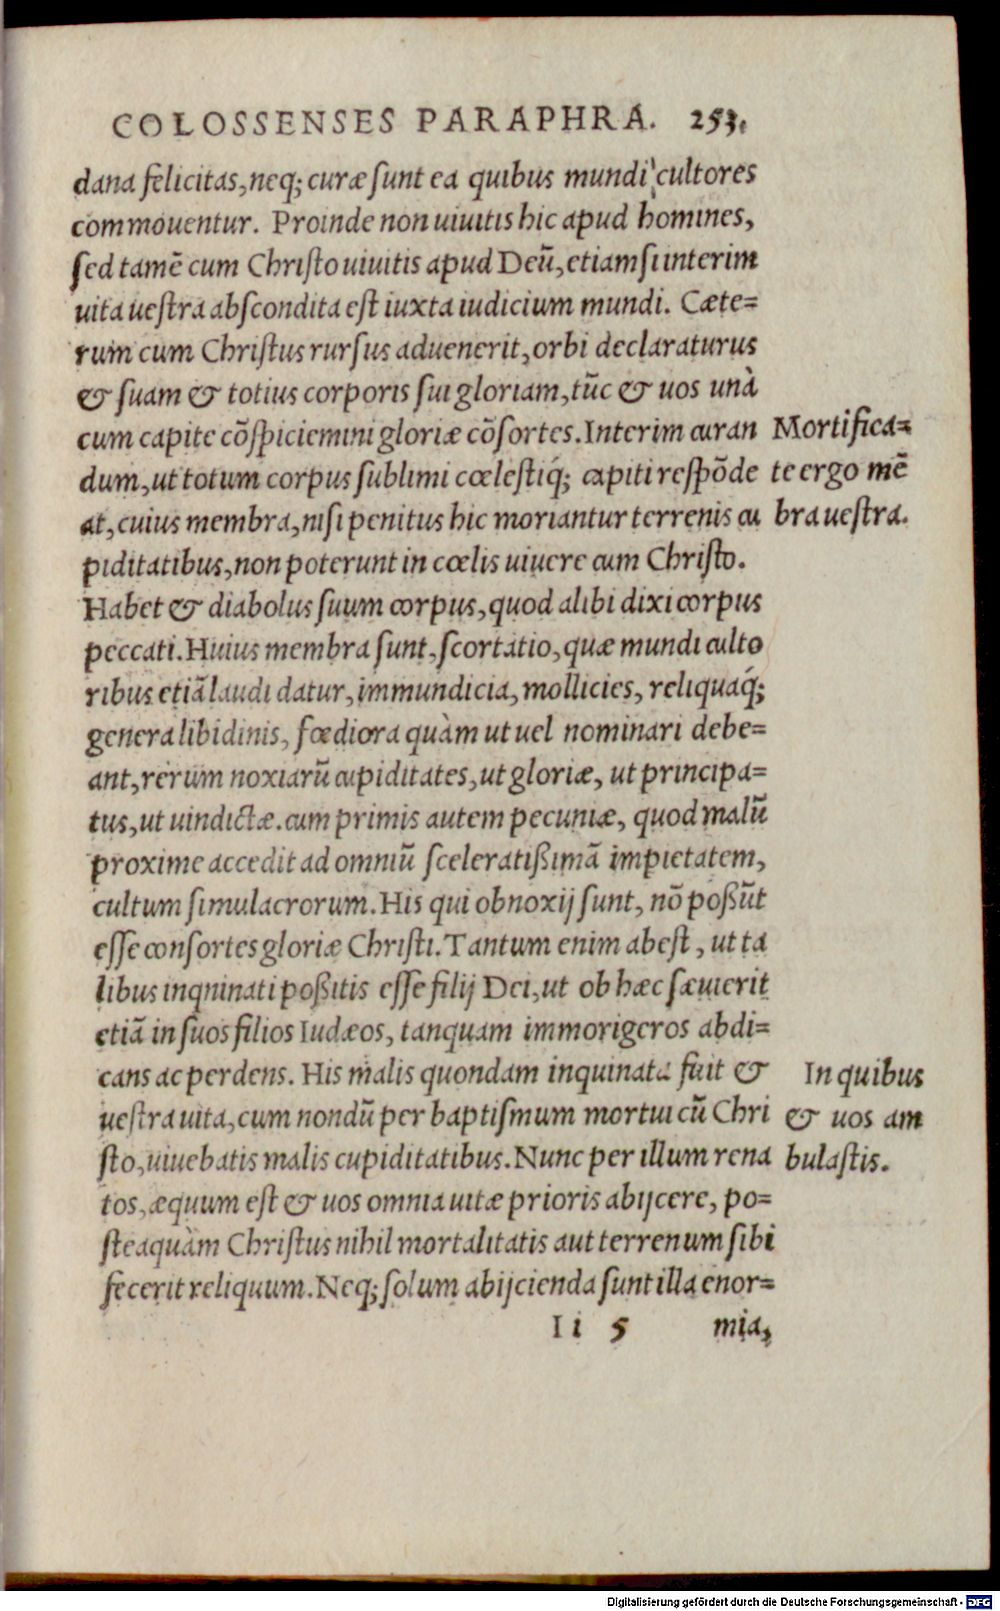 COLOSSENSES PARAPHRA. 253.
dana felicitas, neq; curæ sunt ea quibus mundi cultores
commouentur. Proinde non uiuitis hic apud homines,
sed tamē cum Christo uiuitis apud Deū, etiam si interim
uita uestra abscondita est iuxta iudicium mundi. Cæte=
rum cum Christus rursus aduenerit, orbi declaraturus
& suam & totius corporis sui gloriam, tūc & uos unà
cum capite cōspiciemini gloriæ cōsortes. Interim curan
dum, ut totum corpus sublimi cœlestiq́; capiti respōde
at, cuius membra, nisi penitus hic moriantur terrenis cu
piditatibus, non poterunt in cœlis uiuere cum Christo.
Mortifica=
te ergo mē
bra uestra.
Habet & diabolus suum corpus, quod alibi dixi corpus
peccati. Huius membra sunt, scortatio, quæ mundi culto
ribus etiā laudi datur, immundicia, mollicies, reliquaq́;
genera libidinis, fœdiora quàm ut uel nominari debe=
ant, rerum noxiarū cupiditates, ut gloriæ, ut principa=
tus, ut uindictæ. cum primis autem pecuniæ, quod malū
proxime accedit ad omniū sceleratißimā impietatem,
cultum simulacrorum. His qui obnoxij sunt, nō poßūt
esse consortes gloriæ Christi. Tantum enim abest, ut ta
libus inquinati poßitis esse filij Dei, ut ob hæc sæuierit
etiā in suos filios Iudæos, tanquam immorigeros abdi=
cans ac perdens. His malis quondam inquinata fuit &
uestra uita, cum nondū per baptismum mortui cū Chri
sto, uiuebatis malis cupiditatibus. Nunc per illum rena
tos, æquum est & uos omnia uitæ prioris abijcere, po=
steaquàm Christus nihil mortalitatis aut terrenum sibi
fecerit reliquum. Neq; solum abijcienda sunt illa enor=
In quibus
& uos am
bulastis.
Ii 5 mia,
Digitalisierung gefördert durch die Deutsche Forschungsgemeinschaft - DFG